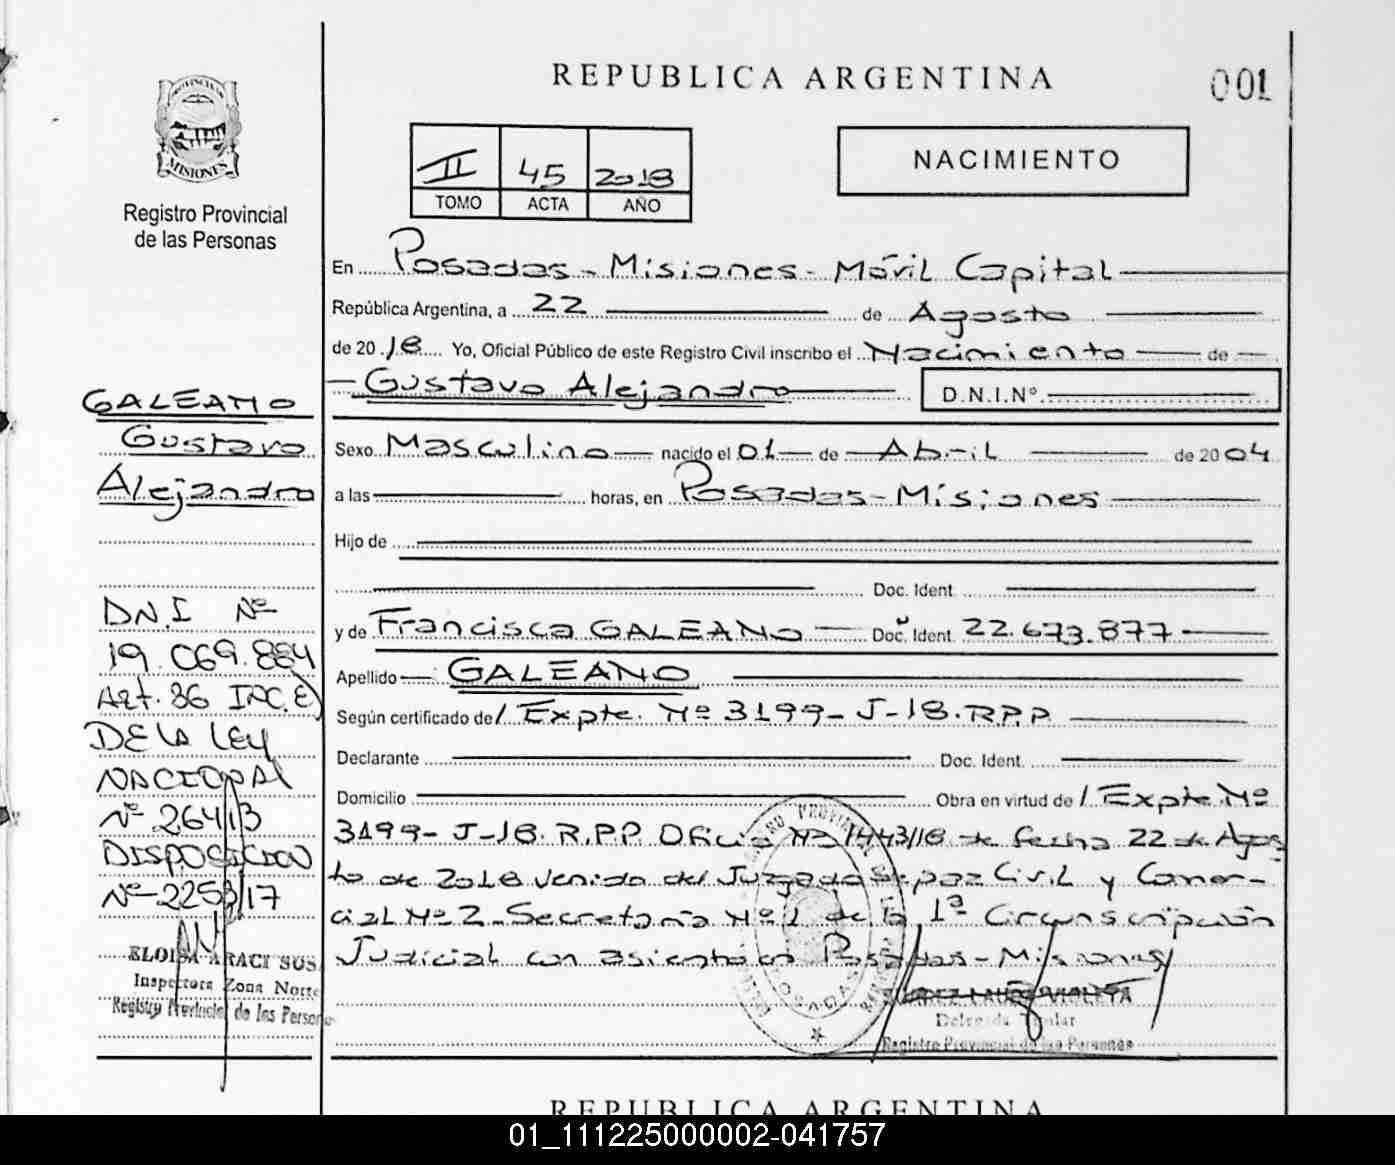 REPUBLICA ARGENTINA
001
PROVINCIA DE
MISIONES
Registro Provincial
de las Personas
II 45 2018
TOMO ACTA AÑO
NACIMIENTO
En Posadas - Misiones - Móvil Capital
República Argentina, a 22 de Agosto
de 2018 Yo, Oficial Público de este Registro Civil inscribo el Nacimiento de
Gustavo Alejandro D.N.I.Nº.
GALEANO
Gustavo
Alejandro
Sexo Masculino nacido el 01 de Abril de 2004
a las horas, en Posadas - Misiones
Hijo de
Doc. Ident.
y de Francisca GALEANO Doc. Ident. 22.673.877
Apellido GALEANO
Según certificado de/ Expte. Nº 3199-J-18.R.P.P
Declarante Doc. Ident.
Domicilio Obra en virtud de / Expte. Nº
3199-J-18.R.P.P. Oficio Nº 1443/18 de fecha 22 de Agos
to de 2018 venido del Juzgado de paz Civil y Comer-
cial Nº 2 - Secretaría Nº 1 de la 1ª Circunscripción
Judicial con asiento en Posadas - Misiones
D.N.I Nº
19.069.884
Art. 36 INC.E)
DE LA LEY
NACIONAL
Nº 26413
DISPOSICION
Nº-2253/17
ELOISA ARACI SOS
Inspectora Zona Norte
Registro Provincial de las Persona
Delegada Titular
Registro Provincial de las Personas
REPUBLICA ARGENTINA
01_111225000002-041757